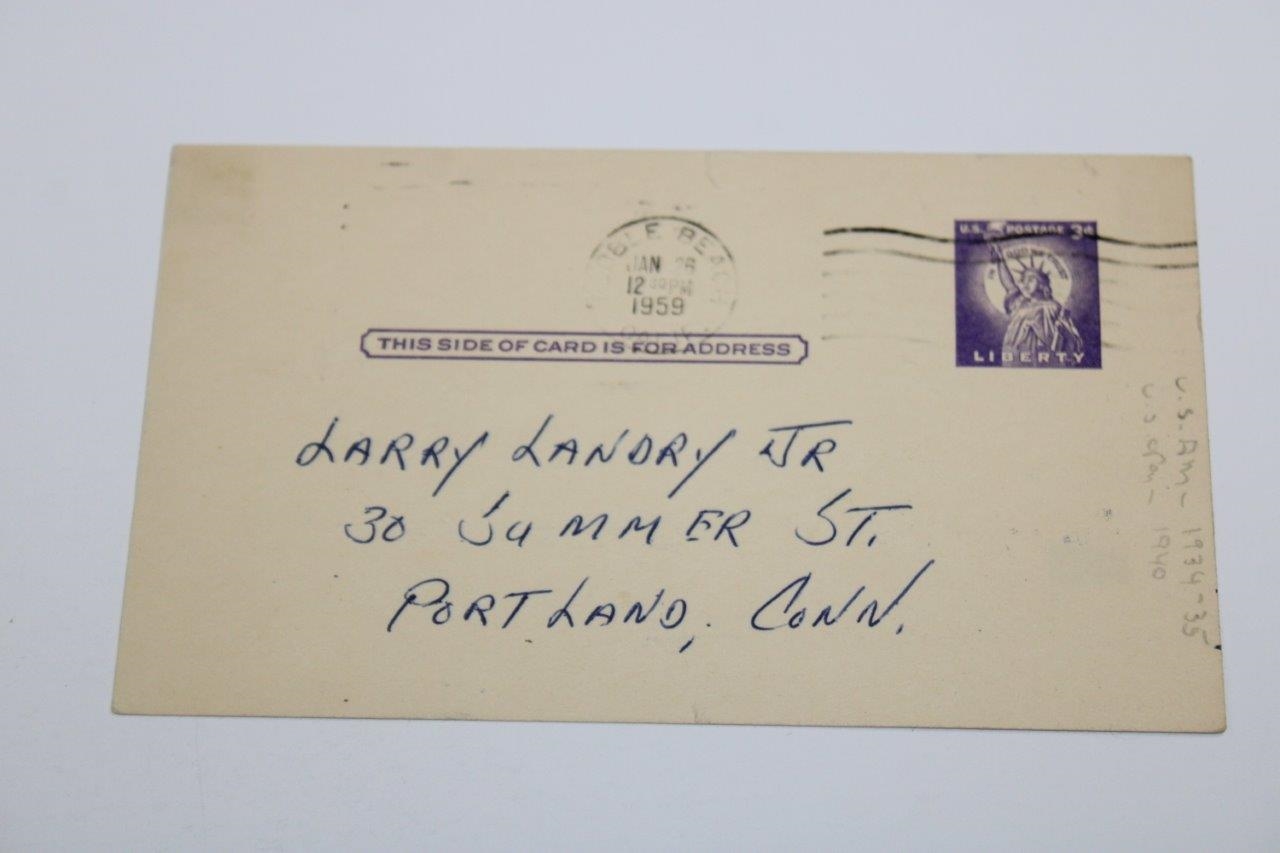 PEBBLE BEACH
JAN 26
12 30 PM
1959
CALIF.
U.S. POSTAGE 3¢
IN GOD WE TRUST
LIBERTY
THIS SIDE OF CARD IS FOR ADDRESS
LARRY LANDRY JR
30 SUMMER ST.
PORTLAND, CONN.
U.S. Am - 1934-35
U.S. Open - 1940